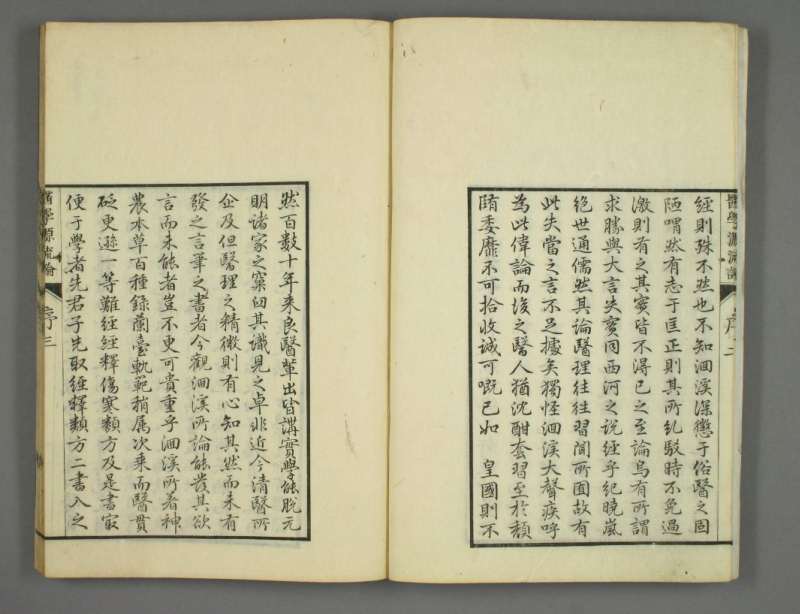 經則殊不然也不知洄溪深懲于俗醫之固
陋喟然有志于匡正則其所糺駁時不免過
激則有之其實皆不得已之至論烏有所謂
求勝與大言失實同西河之說經乎紀曉嵐
絕世通儒然其論醫理往往習聞所囿故有
此失當之言不足據矣獨怪洄溪大聲疾呼
為此偉論而後之醫人猶沈酣套習至於頹
隋委靡不可拾收诚可嘅已如 皇國則不
醫學源流論 序二
然百数十年来良醫輩出皆講實學能脫元
明諸家之窠臼其識見之卓非近今清醫所
企及但醫理之精微則有心知其然而未有
發之言筆之書者今觀洄溪所論能發其欲
言而未能者豈不更可貴重乎洄溪所著神
農本草百種錄蘭臺軌範稍属次乘而醫貫
砭更遜一等難經經釋傷寒類方及是書㝡
便于學者先君子先取經釋類方二書入之
醫學源流論 序三